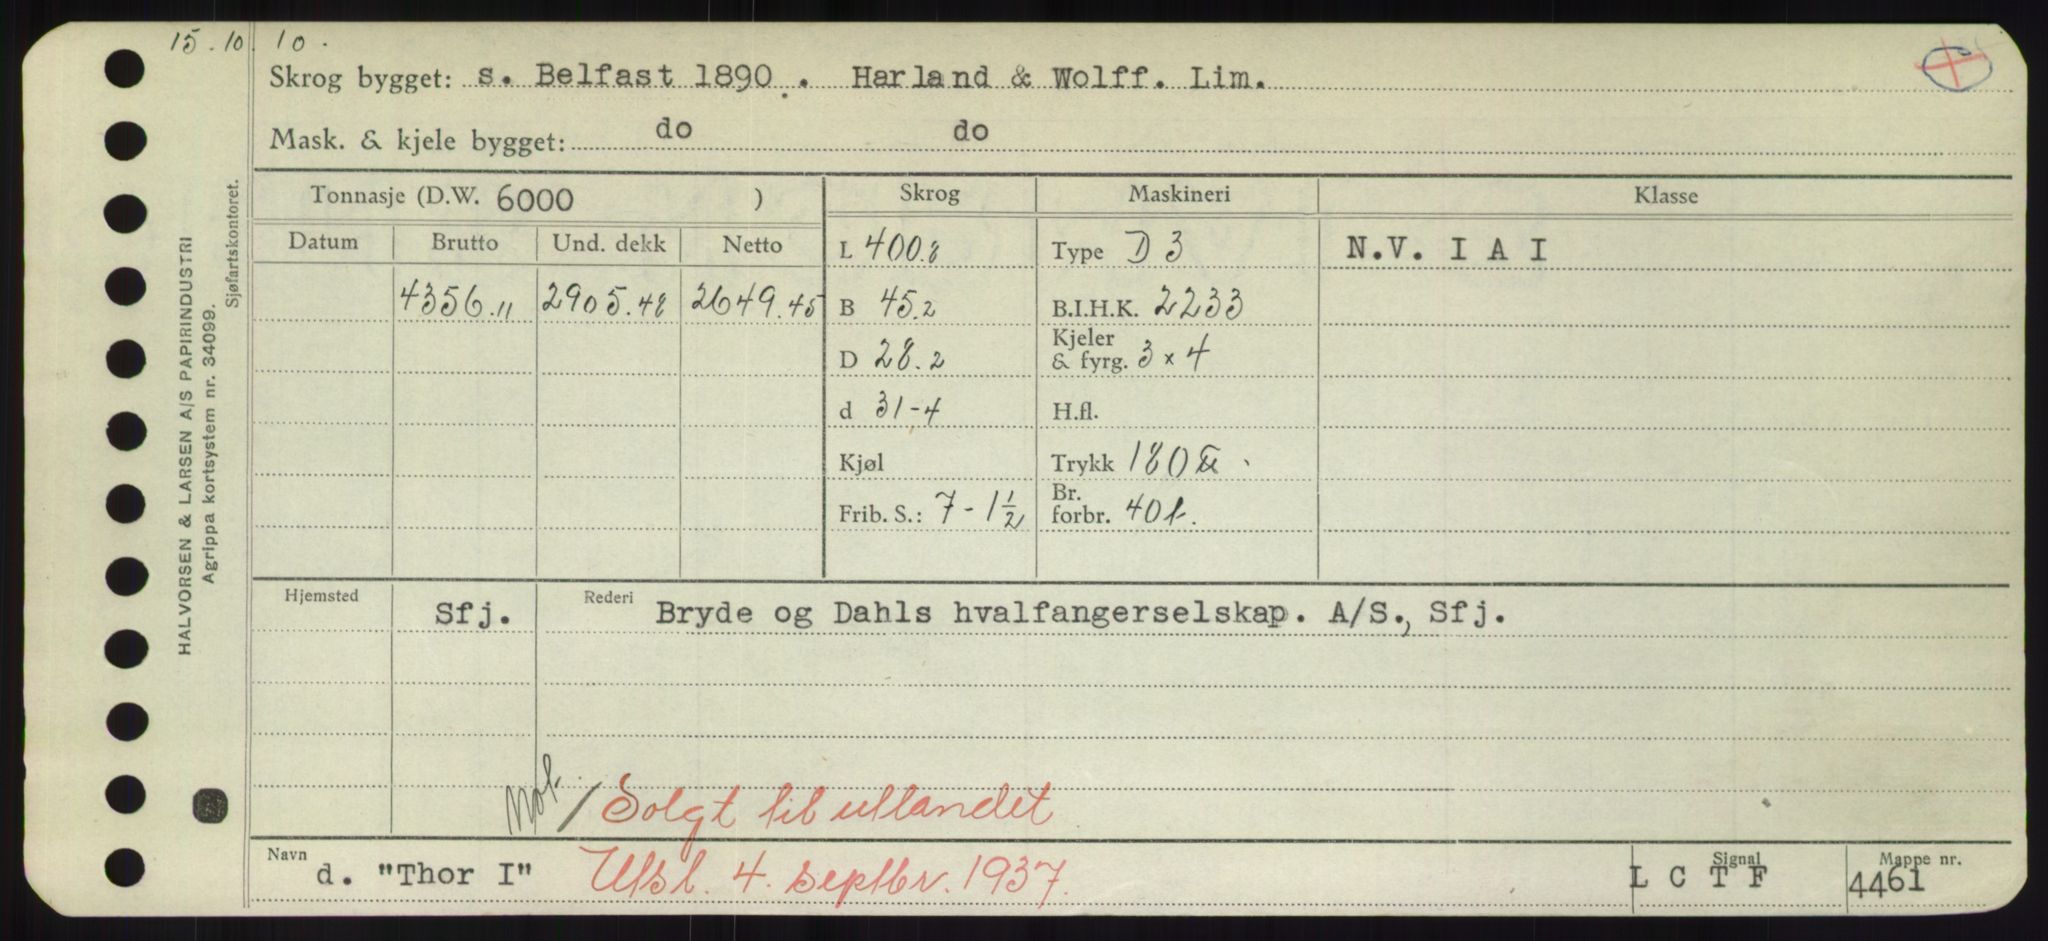 15.10.10.
Skrog bygget: s. Belfast 1890. Harland & Wolff. Lim.
Mask. & kjele bygget: do do
Tonnasje (D.W. 6000 )
Skrog
Maskineri
Klasse
Datum Brutto Und. dekk Netto
4356.11 2905.48 2649.45
L 400.8
B 45.2
D 28.2
d 31-4
Kjøl
Frib. S.: 7-1½
Type D 3
B.I.H.K. 2233
Kjeler
& fyrg. 3 x 4
H.fl.
Trykk 180
Br.
forbr. 40 t.
N.V. I A I
Hjemsted Sfj. Rederi Bryde og Dahls hvalfangerselskap. A/S., Sfj.
Not. / Solgt til utlandet
Navn d. "Thor I" Utsl. 4. septbr. 1937.
Signal L C T F
Mappe nr. 4461
HALVORSEN & LARSEN A/S PAPIRINDUSTRI
Agrippa kortsystem nr. 34099.
Sjøfartskontoret.